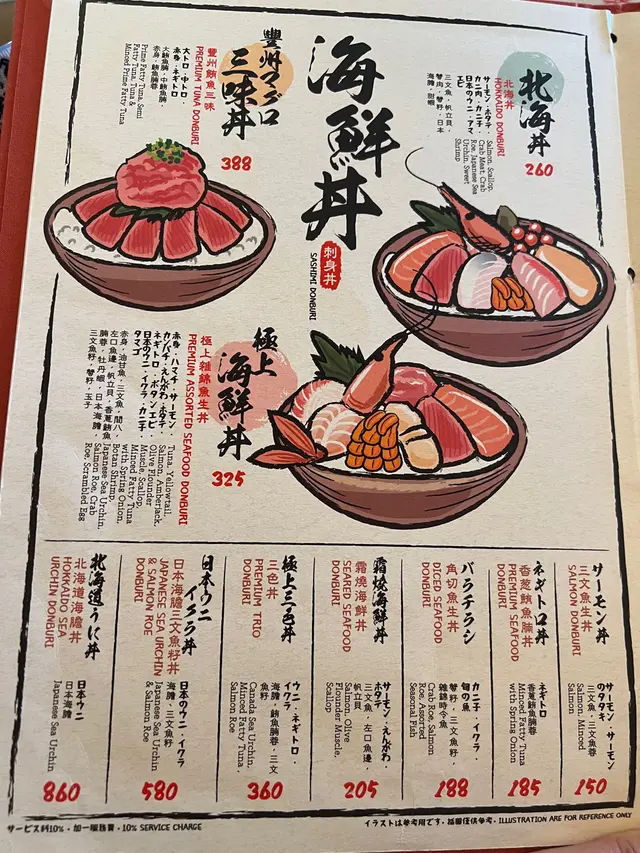 海鮮丼
刺身丼
SASHIMI DONBURI
北海丼
北海丼
HOKKAIDO DONBURI
サーモン・ホタテ・
カニ肉・カニ子・
日本のウニ・アマ
エビ
三文魚・帆立貝・
蟹肉・蟹籽・日本
海膽・甜蝦
Salmon, Scallop,
Crab Meat, Crab
Roe, Japanese Sea
Urchin, Sweet
Shrimp
260
豐州マグロ
三味丼
豐州鮪魚三味
PREMIUM TUNA DONBURI
大トロ・中トロ・
赤身・ネギトロ
大鮪魚腩・中鮪魚腩・
赤身・鮪魚腩蓉
Prime Fatty Tuna, Semi
Fatty Tuna, Tuna &
Minced Prime Fatty Tuna
388
極上
海鮮丼
極上雜錦魚生丼
PREMIUM ASSORTED SEAFOOD DONBURI
赤身・ハマチ・サーモン・
カンパチ・えんがわ・ホタテ・
ネギトロ・ボタンエビ・
日本のウニ・イクラ・カニ子・
タマゴ
赤身・油甘魚・三文魚・間八・
左口魚邊・帆立貝・香蔥鮪魚
腩蓉・牡丹蝦・日本海膽・
三文魚籽・蟹籽・玉子
Tuna, Yellowtail,
Salmon, Amberjack,
Olive Flounder
Muscle, Scallop,
Minced Fatty Tuna
with Spring Onion,
Botan Shrimp,
Japanese Sea Urchin,
Salmon Roe, Crab
Roe, Scrambled Egg
325
サーモン丼
三文魚生丼
SALMON DONBURI
サーモン・サーモン
のタタキ
三文魚・三文魚蓉
Salmon, Minced
Salmon
150
ネギトロ丼
香蔥鮪魚腩丼
PREMIUM SEAFOOD
DONBURI
ネギトロ
香蔥鮪魚腩蓉
Minced Fatty Tuna
with Spring Onion
185
バラチラシ
角切魚生丼
DICED SEAFOOD
DONBURI
カニ子・イクラ・
旬の魚
蟹籽・三文魚籽・
雜錦時令魚
Crab Roe, Salmon
Roe, Assorted
Seasonal Fish
188
霜燒海鮮丼
霜燒海鮮丼
SEARED SEAFOOD
DONBURI
サーモン・えんがわ・
ホタテ
三文魚・左口魚邊・
帆立貝
Salmon, Olive
Flounder Muscle,
Scallop
205
極上三色丼
三色丼
PREMIUM TRIO
DONBURI
ウニ・ネギトロ・
イクラ
海膽・鮪魚腩蓉・三文
魚籽
Canada Sea Urchin,
Minced Fatty Tuna,
Salmon Roe
360
日本ウニ
イクラ丼
日本海膽三文魚籽丼
JAPANESE SEA URCHIN
& SALMON ROE
DONBURI
日本のウニ・イクラ
海膽・三文魚籽
Japanese Sea Urchin
& Salmon Roe
580
北海道うに丼
北海道海膽丼
HOKKAIDO SEA
URCHIN DONBURI
日本ウニ
日本海膽
Japanese Sea Urchin
860
サービス料10%・加一服務費・10% SERVICE CHARGE
イラストは参考用です・插圖僅供參考・ILLUSTRATION ARE FOR REFERENCE ONLY